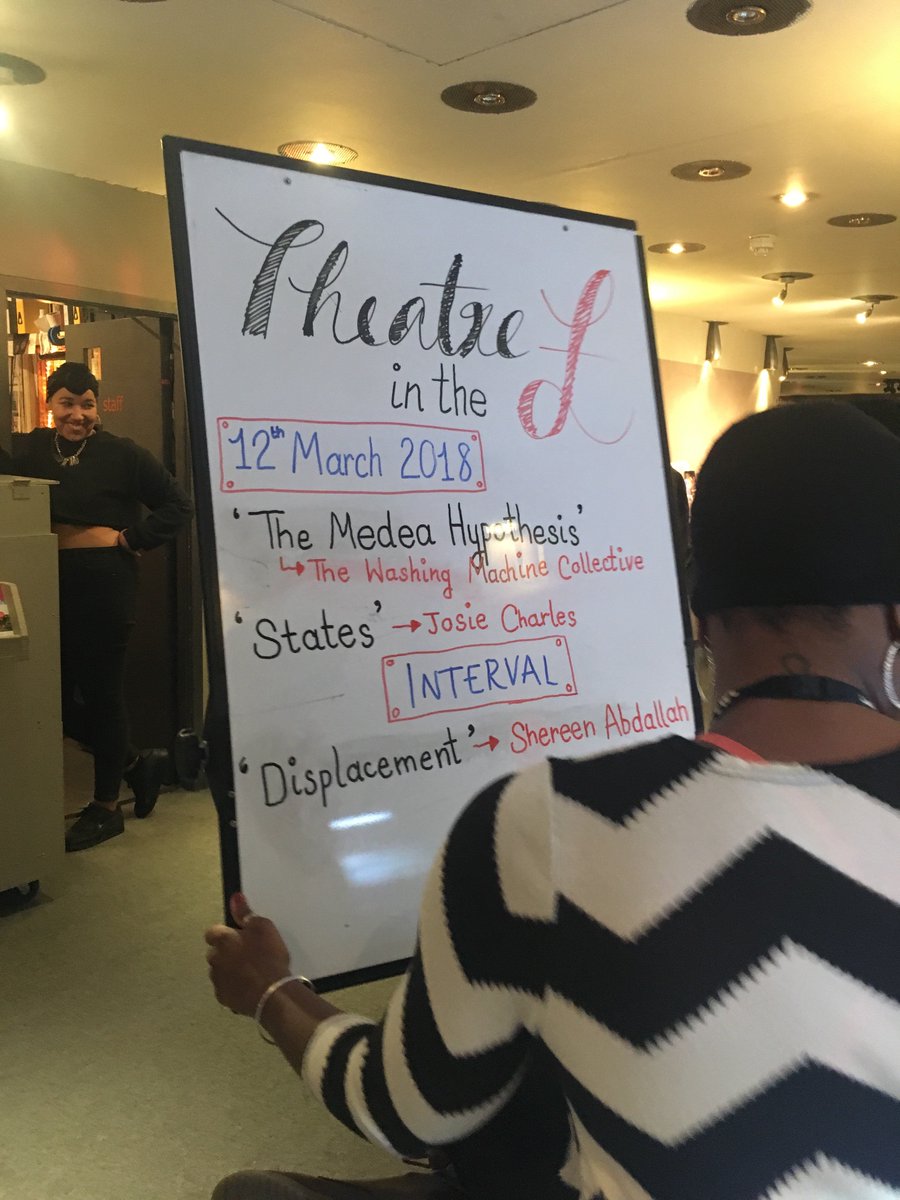 Theatre
in the £
12th March 2018
'The Medea Hypothesis'
↳ The Washing Machine Collective
'States' → Josie Charles
INTERVAL
'Displacement' → Shereen Abdallah
staff